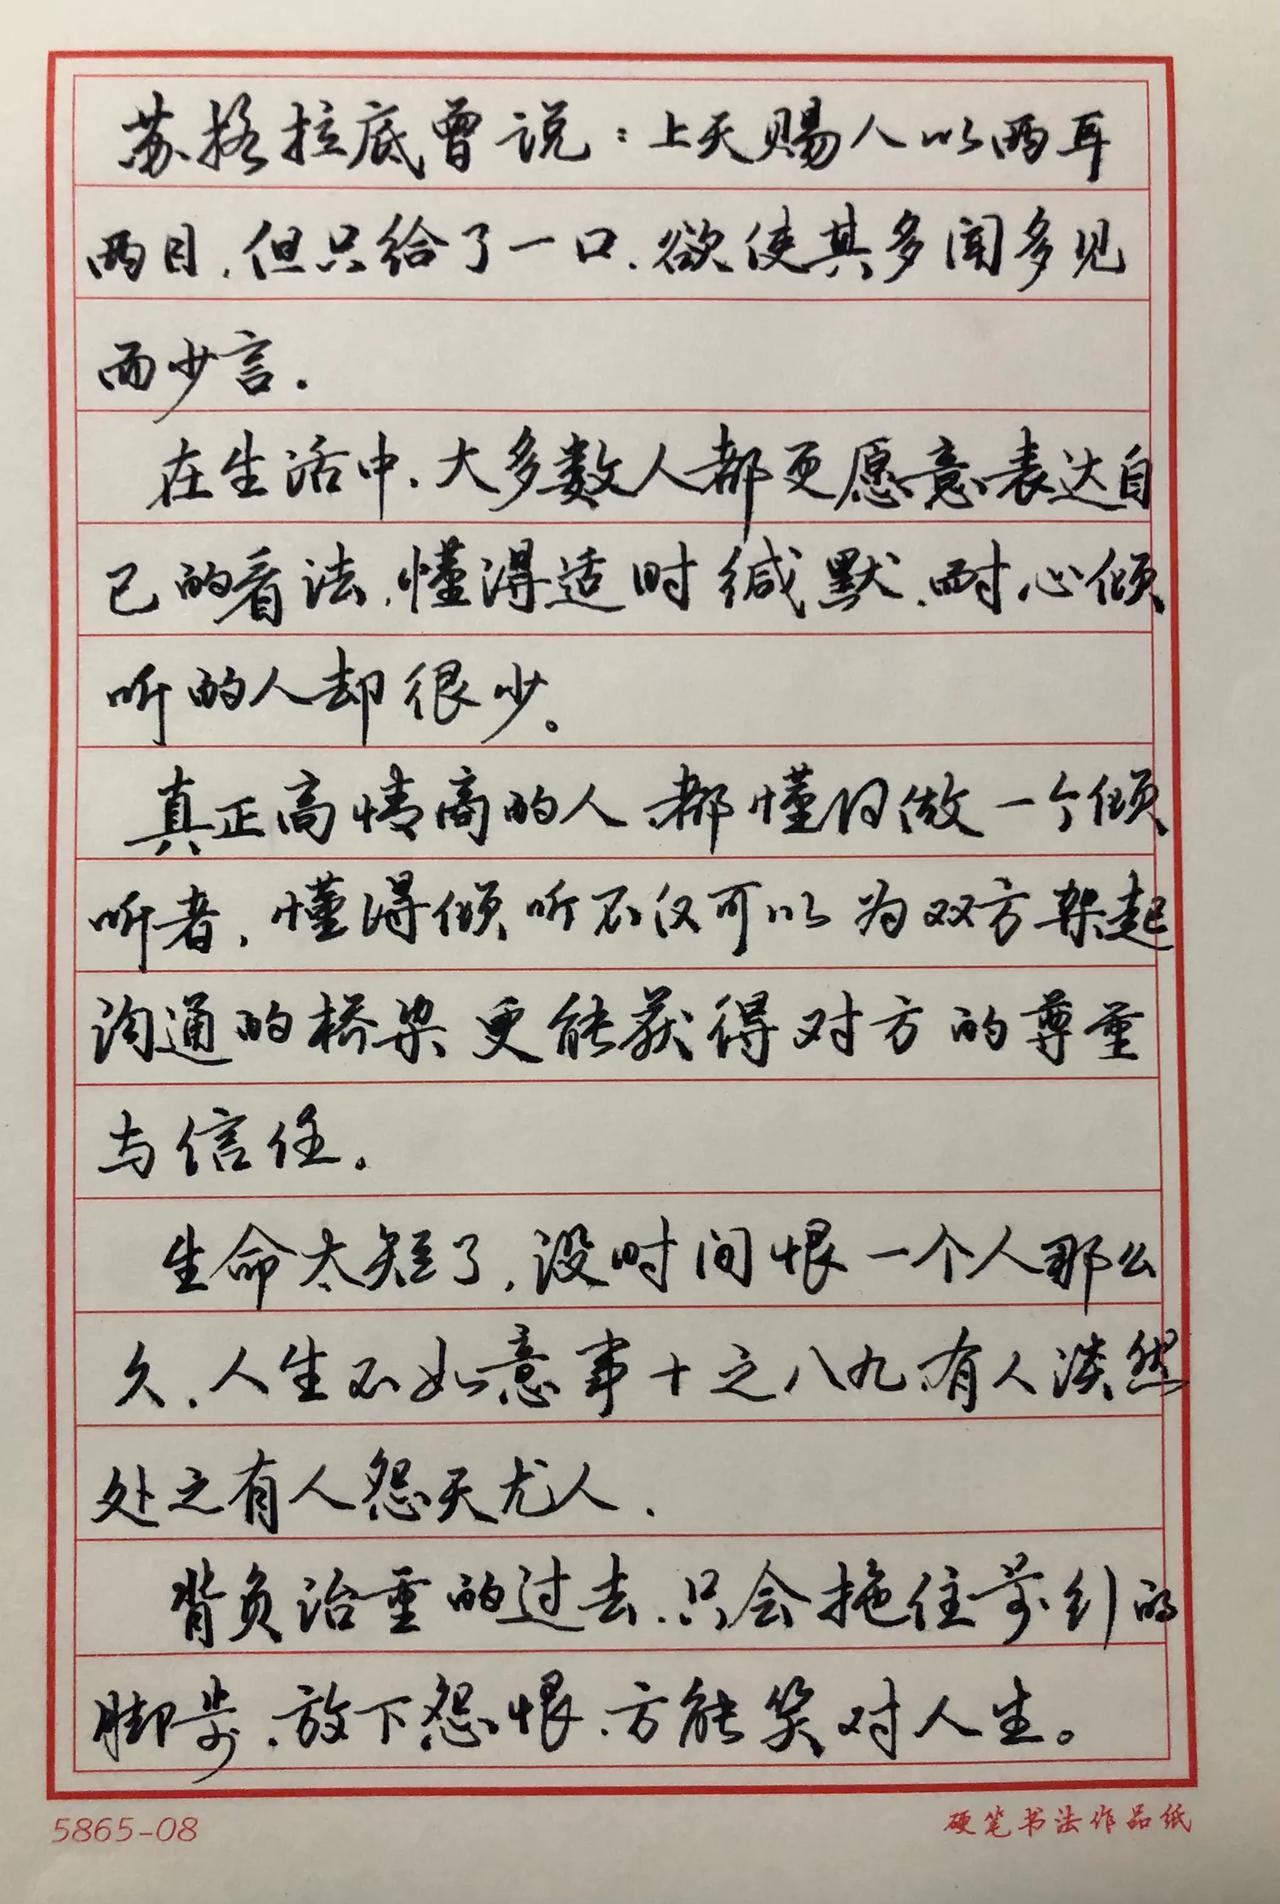 苏格拉底曾说：上天赐人以两耳
两目，但只给了一口，欲使其多闻多见
而少言．
在生活中，大多数人都更愿意表达自
己的看法，懂得适时缄默，耐心倾
听的人却很少。
真正高情商的人，都懂得做一个倾
听者，懂得倾听不仅可以为双方架起
沟通的桥梁更能获得对方的尊重
与信任。
生命太短了，没时间恨一个人那么
久，人生不如意事十之八九，有人淡然
处之有人怨天尤人．
背负沉重的过去，只会拖住前行的
脚步，放下怨恨，方能笑对人生。
5865-08
硬笔书法作品纸